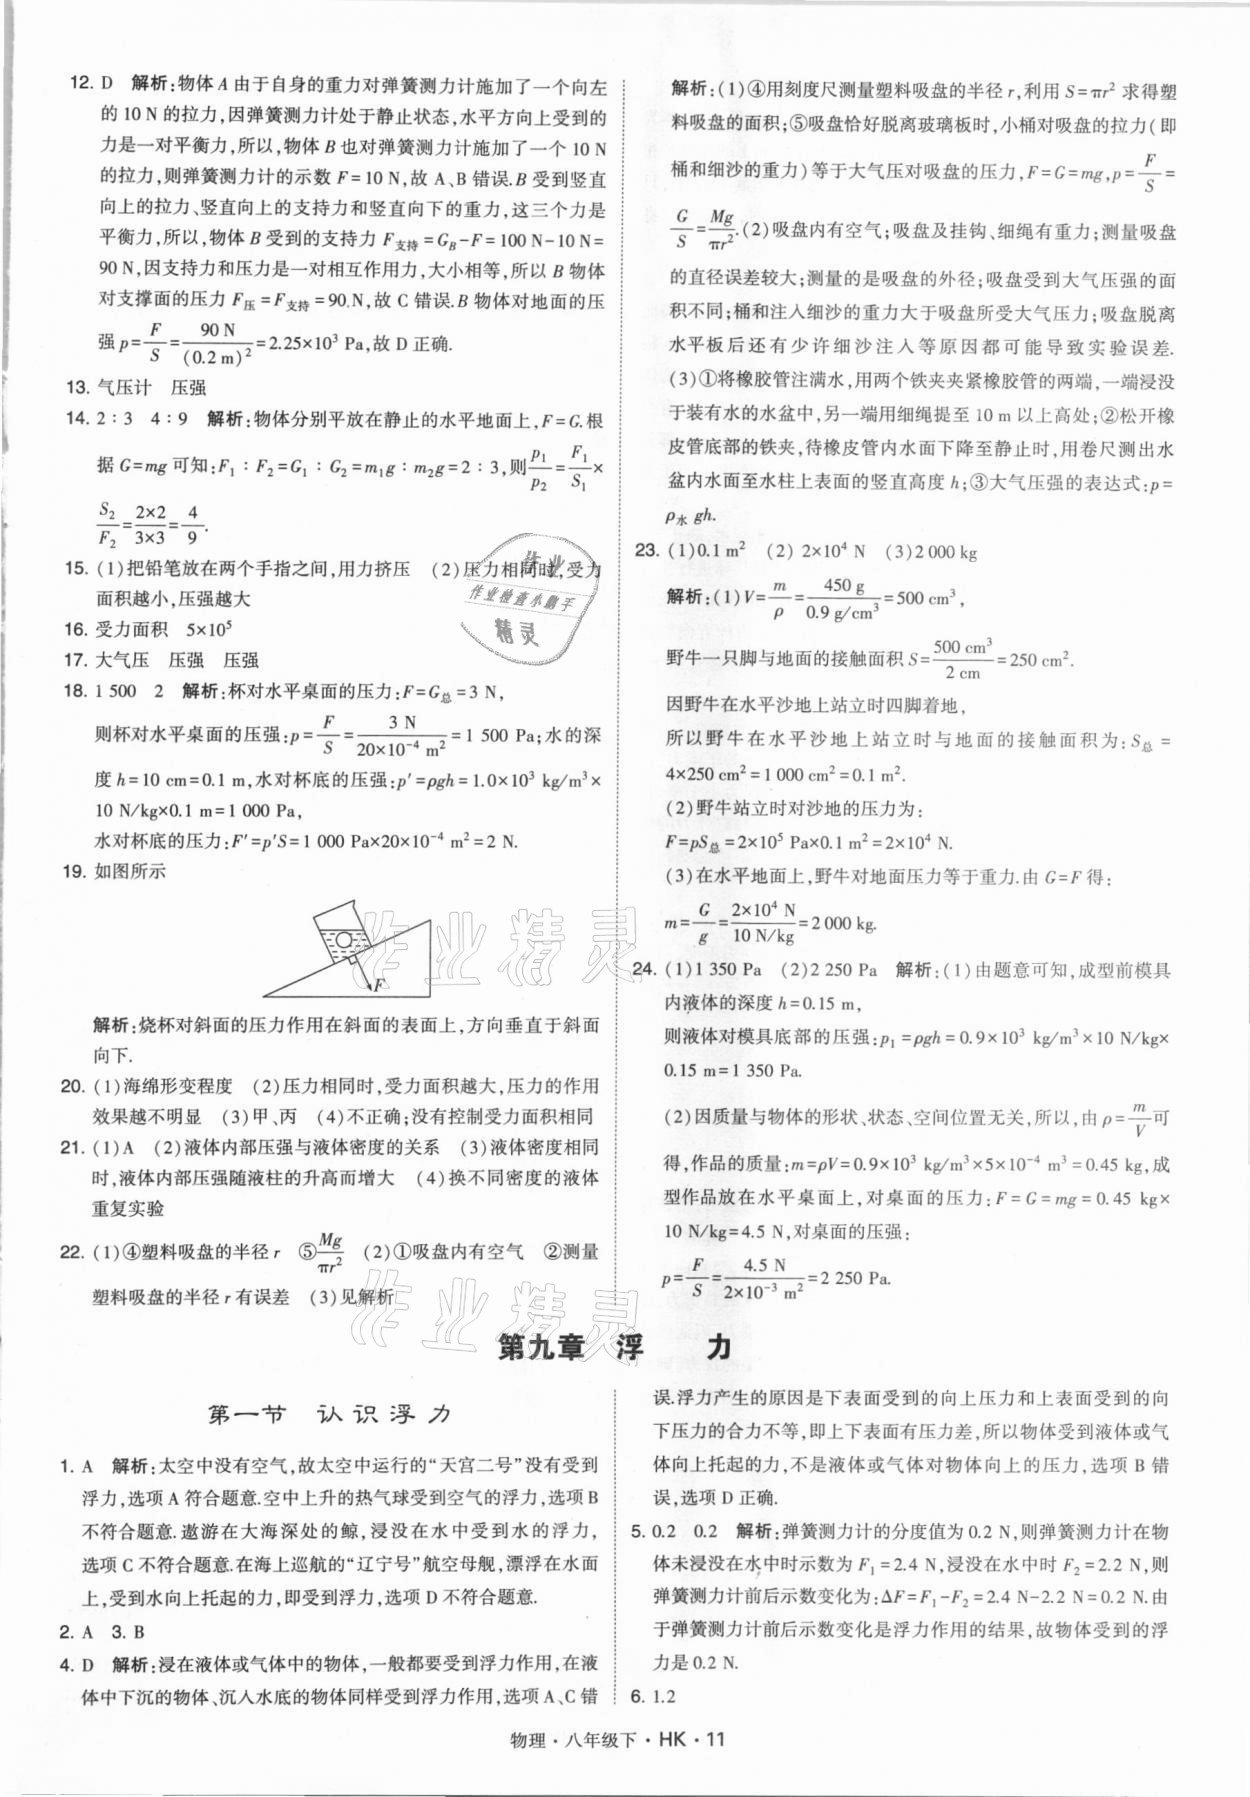 12. D 解析:物体 A 由于自身的重力对弹簧测力计施加了一个向左
的 10 N 的拉力,因弹簧测力计处于静止状态,水平方向上受到的
力是一对平衡力,所以,物体 B 也对弹簧测力计施加了一个 10 N
的拉力,则弹簧测力计的示数 F=10 N,故 A、B 错误.B 受到竖直
向上的拉力、竖直向上的支持力和竖直向下的重力,这三个力是
平衡力,所以,物体 B 受到的支持力 F支持=G_B-F=100 N-10 N=
90 N,因支持力和压力是一对相互作用力,大小相等,所以 B 物体
对支撑面的压力 F压=F支持=90 N,故 C 错误.B 物体对地面的压
强 p=F/S=90 N/(0.2 m)²=2.25×10³ Pa,故 D 正确.
13. 气压计 压强
14. 2∶3 4∶9 解析:物体分别平放在静止的水平地面上,F=G.根
据 G=mg 可知:F₁∶F₂=G₁∶G₂=m₁g∶m₂g=2∶3,则p₁/p₂=F₁/S₁×
S₂/F₂=2×2/3×3=4/9.
15. (1)把铅笔放在两个手指之间,用力挤压 (2)压力相同时,受力
面积越小,压强越大
16. 受力面积 5×10⁵
17. 大气压 压强 压强
18. 1 500 2 解析:杯对水平桌面的压力:F=G总=3 N,
则杯对水平桌面的压强:p=F/S=3 N/20×10⁻⁴ m²=1 500 Pa;水的深
度 h=10 cm=0.1 m,水对杯底的压强:p′=ρgh=1.0×10³ kg/m³×
10 N/kg×0.1 m=1 000 Pa,
水对杯底的压力:F′=p′S=1 000 Pa×20×10⁻⁴ m²=2 N.
19. 如图所示
F
解析:烧杯对斜面的压力作用在斜面的表面上,方向垂直于斜面
向下.
20. (1)海绵形变程度 (2)压力相同时,受力面积越大,压力的作用
效果越不明显 (3)甲、丙 (4)不正确;没有控制受力面积相同
21. (1)A (2)液体内部压强与液体密度的关系 (3)液体密度相同
时,液体内部压强随液柱的升高而增大 (4)换不同密度的液体
重复实验
22. (1)④塑料吸盘的半径 r ⑤Mg/πr² (2)①吸盘内有空气 ②测量
塑料吸盘的半径 r 有误差 (3)见解析
解析:(1)④用刻度尺测量塑料吸盘的半径 r,利用 S=πr² 求得塑
料吸盘的面积;⑤吸盘恰好脱离玻璃板时,小桶对吸盘的拉力(即
桶和细沙的重力)等于大气压对吸盘的压力,F=G=mg,p=F/S=
G/S=Mg/πr².(2)吸盘内有空气;吸盘及挂钩、细绳有重力;测量吸盘
的直径误差较大;测量的是吸盘的外径;吸盘受到大气压强的面
积不同;桶和注入细沙的重力大于吸盘所受大气压力;吸盘脱离
水平板后还有少许细沙注入等原因都可能导致实验误差.
(3)①将橡胶管注满水,用两个铁夹夹紧橡胶管的两端,一端浸没
于装有水的水盆中,另一端用细绳提至 10 m 以上高处;②松开橡
皮管底部的铁夹,待橡皮管内水面下降至静止时,用卷尺测出水
盆内水面至水柱上表面的竖直高度 h;③大气压强的表达式:p=
ρ水 gh.
23. (1)0.1 m² (2) 2×10⁴ N (3)2 000 kg
解析:(1)V=m/ρ=450 g/0.9 g/cm³=500 cm³,
野牛一只脚与地面的接触面积 S=500 cm³/2 cm=250 cm².
因野牛在水平沙地上站立时四脚着地,
所以野牛在水平沙地上站立时与地面的接触面积为:S总=
4×250 cm²=1 000 cm²=0.1 m².
(2)野牛站立时对沙地的压力为:
F=pS总=2×10⁵ Pa×0.1 m²=2×10⁴ N.
(3)在水平地面上,野牛对地面压力等于重力.由 G=F 得:
m=G/g=2×10⁴ N/10 N/kg=2 000 kg.
24. (1)1 350 Pa (2)2 250 Pa 解析:(1)由题意可知,成型前模具
内液体的深度 h=0.15 m,
则液体对模具底部的压强:p₁=ρgh=0.9×10³ kg/m³×10 N/kg×
0.15 m=1 350 Pa.
(2)因质量与物体的形状、状态、空间位置无关,所以,由 ρ=m/V可
得,作品的质量:m=ρV=0.9×10³ kg/m³×5×10⁻⁴ m³=0.45 kg,成
型作品放在水平桌面上,对桌面的压力:F=G=mg=0.45 kg×
10 N/kg=4.5 N,对桌面的压强:
p=F/S=4.5 N/2×10⁻³ m²=2 250 Pa.
作业
作业检查小助手
精灵
作业精灵
作业精灵
第九章 浮 力
第一节 认识浮力
1. A 解析:太空中没有空气,故太空中运行的“天宫二号”没有受到
浮力,选项 A 符合题意.空中上升的热气球受到空气的浮力,选项 B
不符合题意.遨游在大海深处的鲸,浸没在水中受到水的浮力,
选项 C 不符合题意.在海上巡航的“辽宁号”航空母舰,漂浮在水面
上,受到水向上托起的力,即受到浮力,选项 D 不符合题意.
2. A 3. B
4. D 解析:浸在液体或气体中的物体,一般都要受到浮力作用,在液
体中下沉的物体、沉入水底的物体同样受到浮力作用,选项 A、C 错
误.浮力产生的原因是下表面受到的向上压力和上表面受到的向
下压力的合力不等,即上下表面有压力差,所以物体受到液体或气
体向上托起的力,不是液体或气体对物体向上的压力,选项 B 错
误,选项 D 正确.
5. 0.2 0.2 解析:弹簧测力计的分度值为 0.2 N,则弹簧测力计在物
体未浸没在水中时示数为 F₁=2.4 N,浸没在水中时 F₂=2.2 N,则
弹簧测力计前后示数变化为:ΔF=F₁-F₂=2.4 N-2.2 N=0.2 N.由
于弹簧测力计前后示数变化是浮力作用的结果,故物体受到的浮
力是 0.2 N.
6. 1.2
物理·八年级下·HK·11